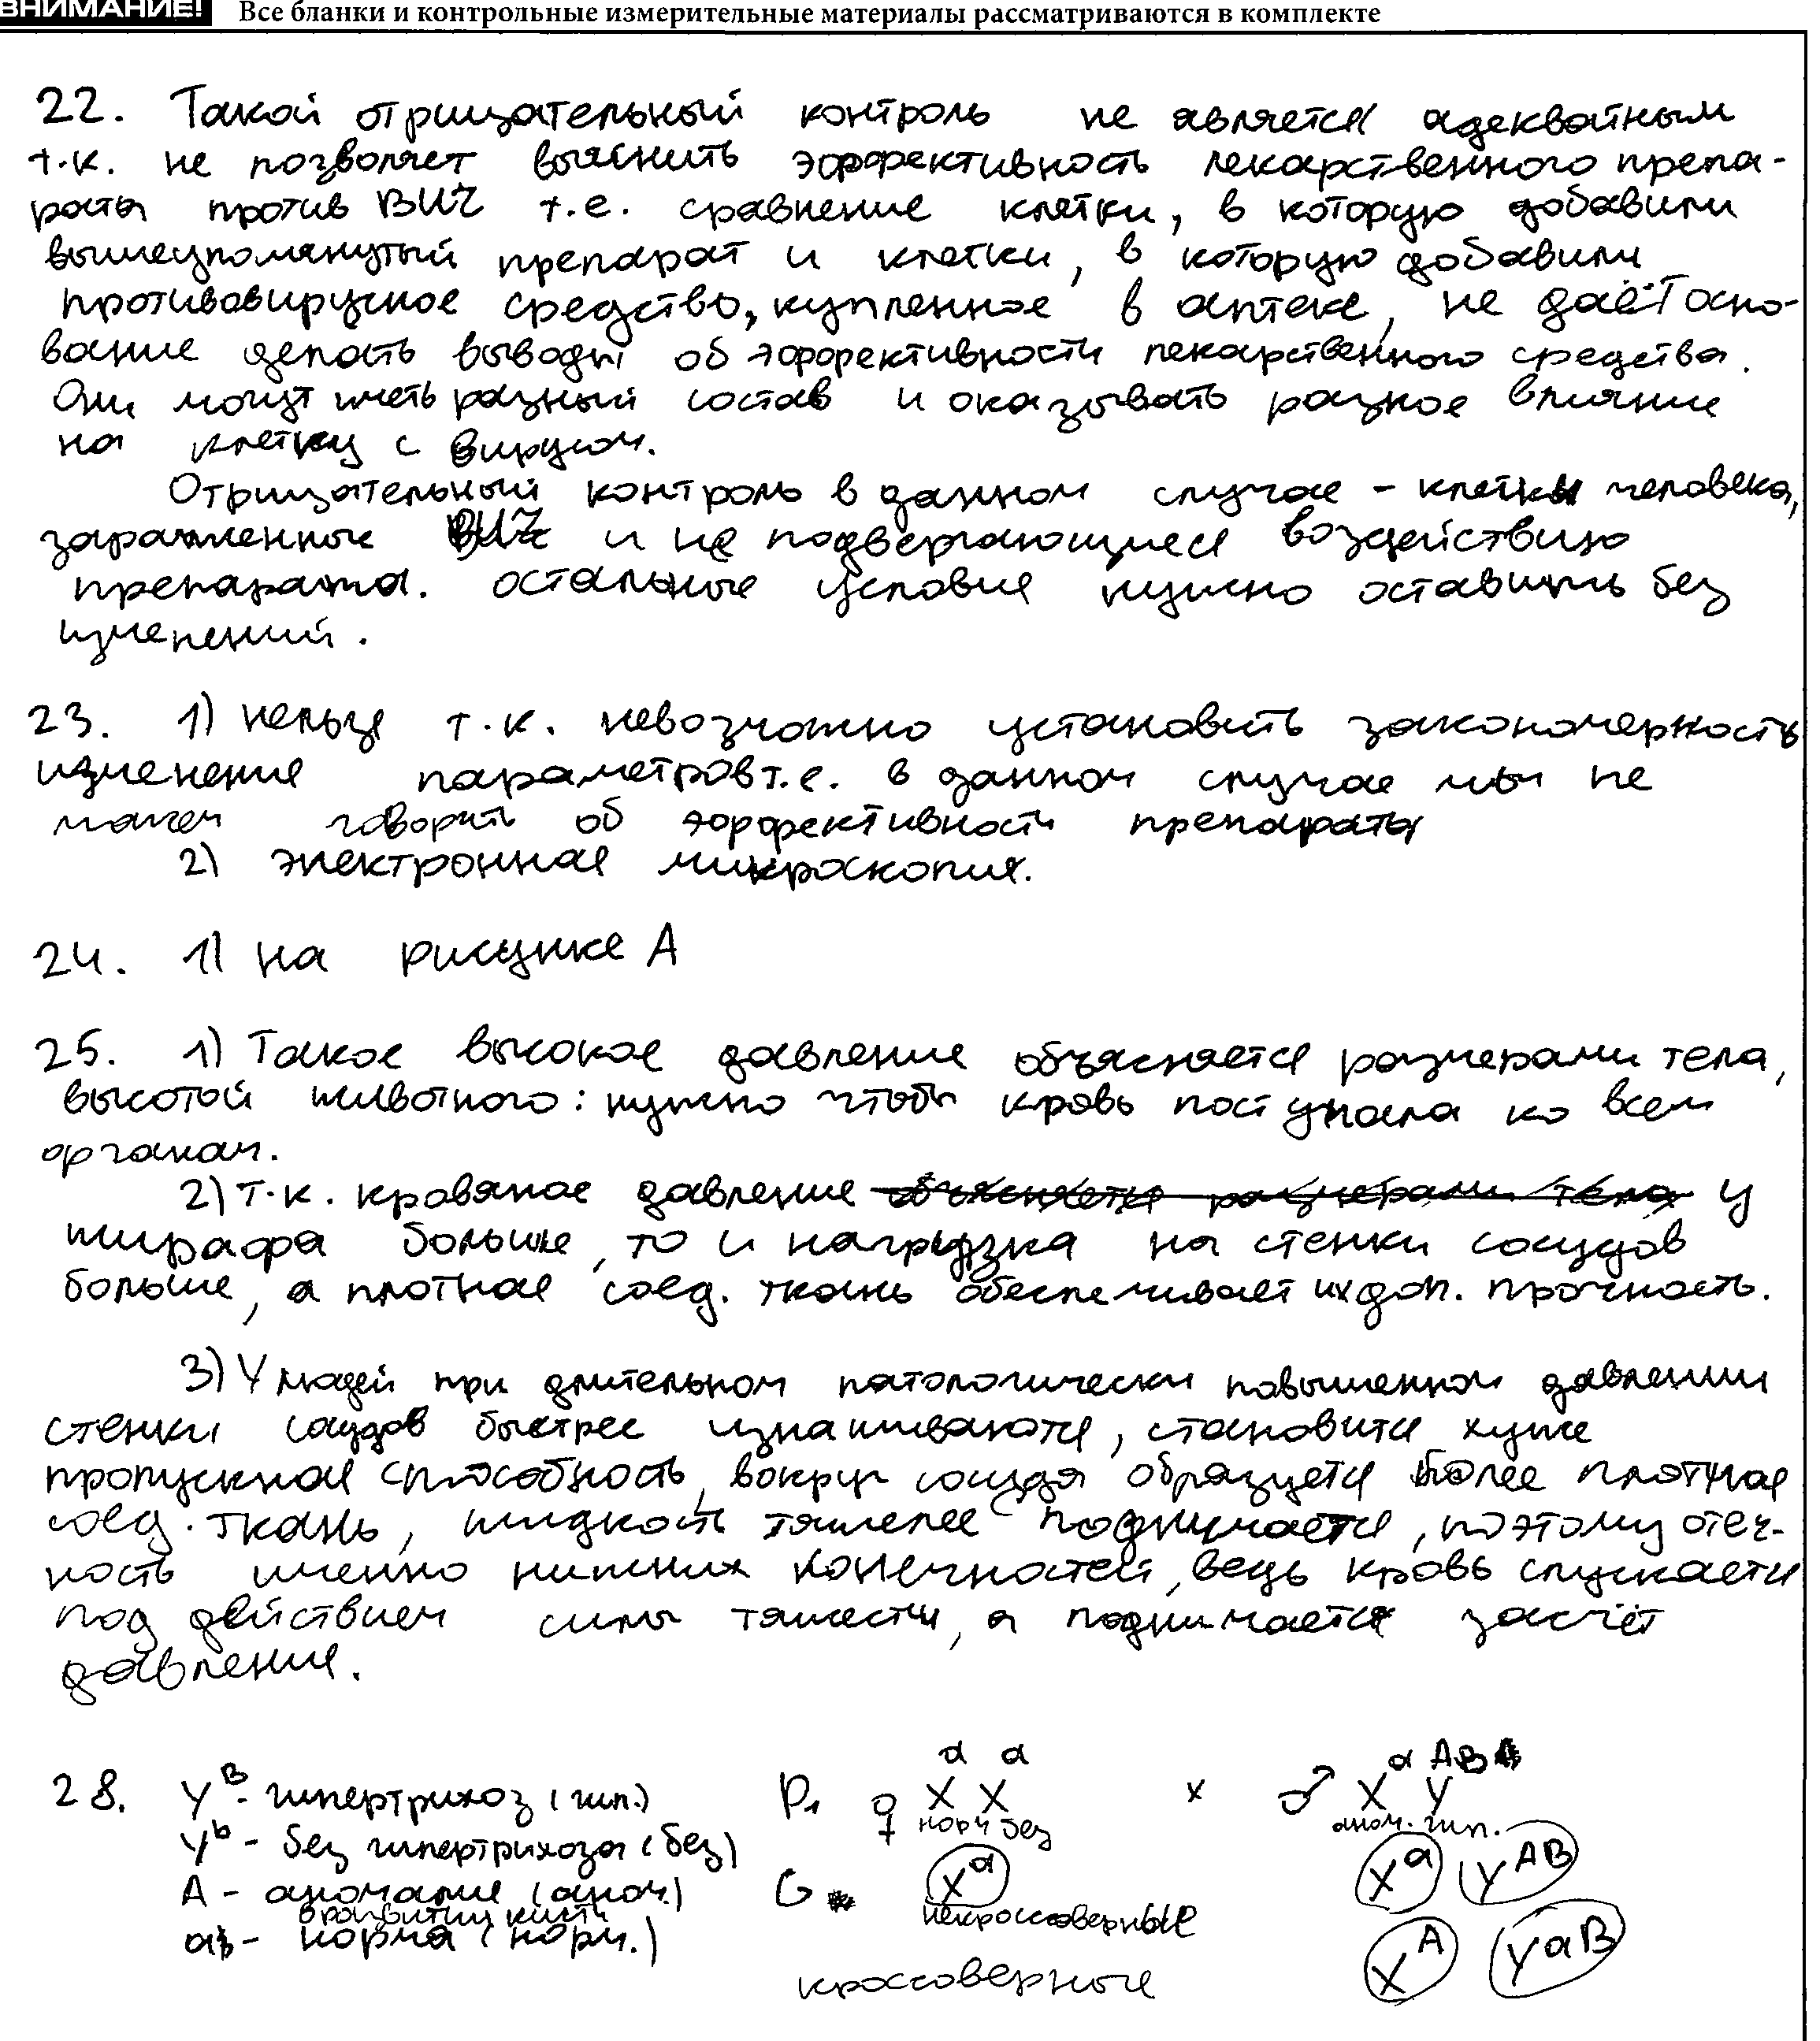 ВНИМАНИЕ! Все бланки и контрольные измерительные материалы рассматриваются в комплекте
22. Такой отрицательный контроль не является адекватным
т.к. не позволяет выяснить эффективность лекарственного препа-
рата против ВИЧ т.е. сравнение клетки, в которую добавили
вышеупомянутый препарат и клетки, в которую добавили
противовирусное средство, купленное в аптеке, не даёт осно-
вание делать выводы об эффективности лекарственного средства.
Они могут иметь разный состав и оказывать разное влияние
на клетку с вирусом.
Отрицательный контроль в данном случае - клетки человека,
зараженные ВИЧ и не подвергающиеся воздействию
препарата. остальные условия нужно оставить без
изменений.
23. 1) нельзя т.к. невозможно установить закономерность
изменения параметров т.е. в данном случае мы не
можем говорить об эффективности препарата
2) электронная микроскопия.
24. 1) на рисунке А
25. 1) Такое высокое давление объясняется размерами тела,
высотой животного: нужно чтобы кровь поступала ко всем
органам.
2) т.к. кровяное давление объясняется размерами тела у
жирафа больше, то и нагрузка на стенки сосудов
больше, а плотная соед. ткань обеспечивает их доп. прочность.
3) У людей при длительном патологически повышенном давлении
стенки сосудов быстрее изнашиваются, становится хуже
пропускная способность, вокруг сосуда образуется более плотная
соед. ткань, жидкость тяжелее поднимается, поэтому отеч-
ность именно нижних конечностей, ведь кровь спускается
под действием силы тяжести, а поднимается засчёт
давления.
28. Y^B - гипертрихоз (гип.) P₁ ♀ X^a X^a x ♂ X^a Y^AB
Y^b - без гипертрихоза (без) норм без аном. гип.
А - аномалия (аном.) G X^a X^a Y^AB
в развитии кисти некроссоверные
a - норма (норм.) X^A Y^aB
кроссоверные